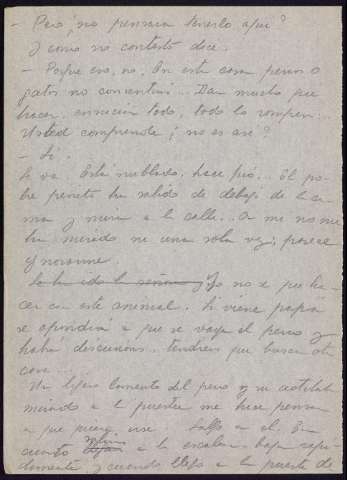 - Pero ¿no pensará tenerlo aquí?
Y como no contesto dice:
- Porque eso, no. En esta casa perros o
gatos no consentiré... Dan mucho que
hacer, ensucian todo, todo lo rompen...
Usted comprende ¿no es así?
- Sí.
Se va. Está nublado, hace frío... El po-
bre perrito ha salido de debajo de la ca-
ma y mira a la calle... A mí no me
ha mirado ni una sola vez; parece
ignorarme.
Se ha ido la señora Yo no sé que ha-
cer con este animal. Si viene papá
se opondría a que se vaya el perro y
habrá discusiones... tendría que buscar otra
casa...
Un ligero lamento del perro y su
mirando a la puerta me hace pensar
a que quiere irse. Salgo a él. En
cuanto a la escalera baja rápi-
damente y cuando llego a la puerta de